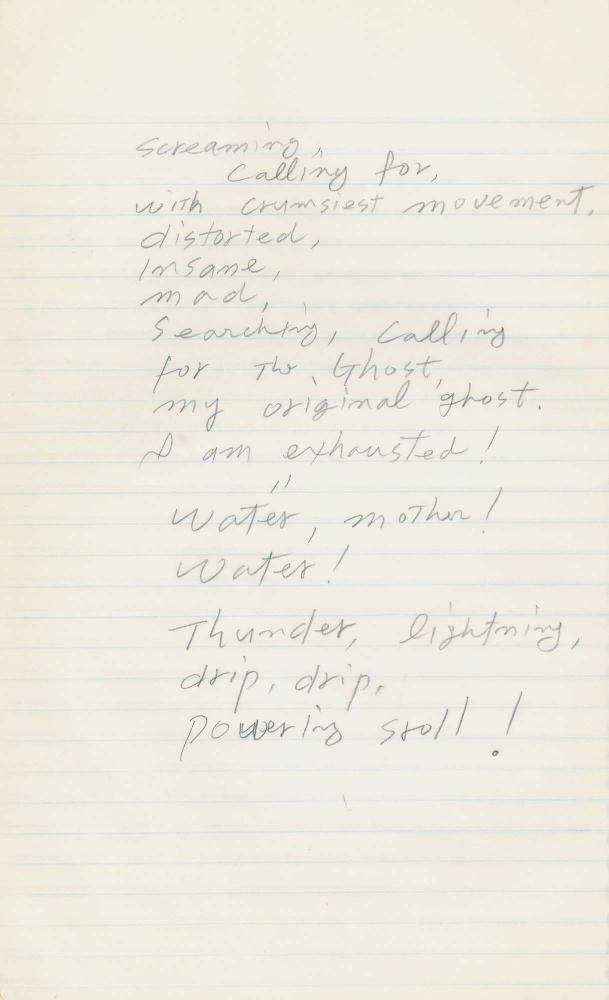 Screaming,
Calling for,
with crumsiest movement,
distorted,
Insane,
mad,
Searching, Calling
for The Ghost,
my original ghost.
I am exhausted!
"
Water, mother!
Water!
Thunder, lightning,
drip, drip,
powering stoll!